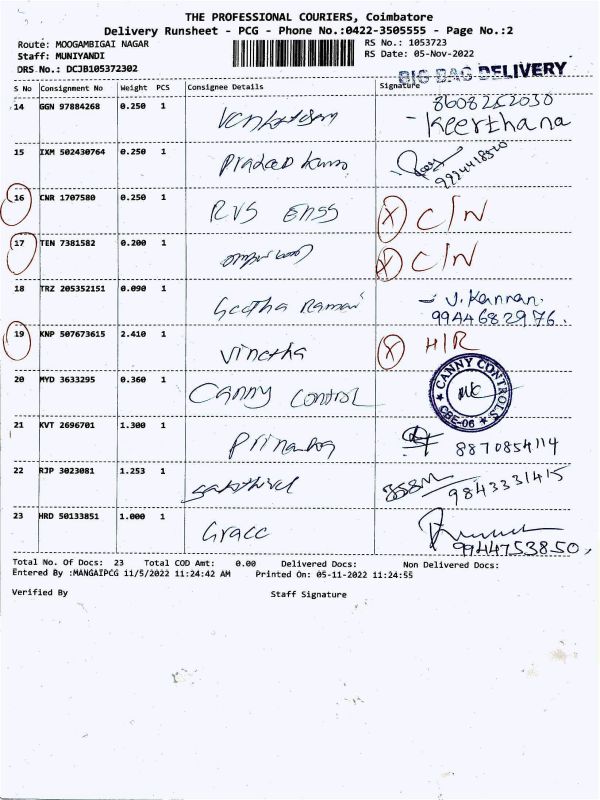 THE PROFESSIONAL COURIERS, Coimbatore
Delivery Runsheet - PCG - Phone No.:0422-3505555 - Page No.:2
Route: MOOGAMBIGAI NAGAR
RS No.: 1053723
Staff: MUNIYANDI
RS Date: 05-Nov-2022
DRS No.: DCJB105372302
BIG BAG DELIVERY
S No Consignment No Weight PCS Consignee Details Signature
14 GGN 97884268 0.250 1 8608252030
- Keerthana
15 IXM 502430764 0.250 1 Pradeep Kumar
16 CNR 1707580 0.250 1 RVS X C/N
17 TEN 7381582 0.200 1 X C/N
18 TRZ 205352151 0.090 1 Geetha Ramani - J. Kannan.
9944682976.
19 KNP 507673615 2.410 1 Vinetha X H/R
20 MYD 3633295 0.360 1 Canny Control CANNY CONTROLS CBE-06
21 KVT 2696701 1.300 1 8870854114
22 RJP 3023081 1.253 1 Sakthivel 9843331415
23 HRD 50133851 1.000 1 Grace
9944753850,
Total No. Of Docs: 23 Total COD Amt: 0.00 Delivered Docs: Non Delivered Docs:
Entered By :MANGAIPCG 11/5/2022 11:24:42 AM Printed On: 05-11-2022 11:24:55
Verified By Staff Signature